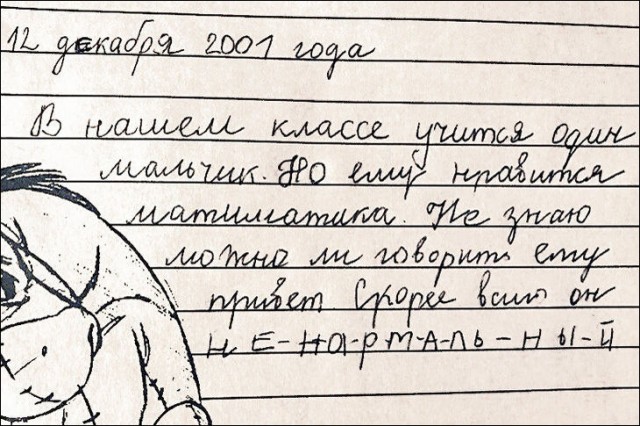 12 декабря 2001 года
В нашем классе учится один
мальчик. Но ему нравится
матиматика. Не знаю
можно ли говорить ему
привет Скорее всиго он
Н Е-НА-Р-М-А-ЛЬ-НЫ-Й